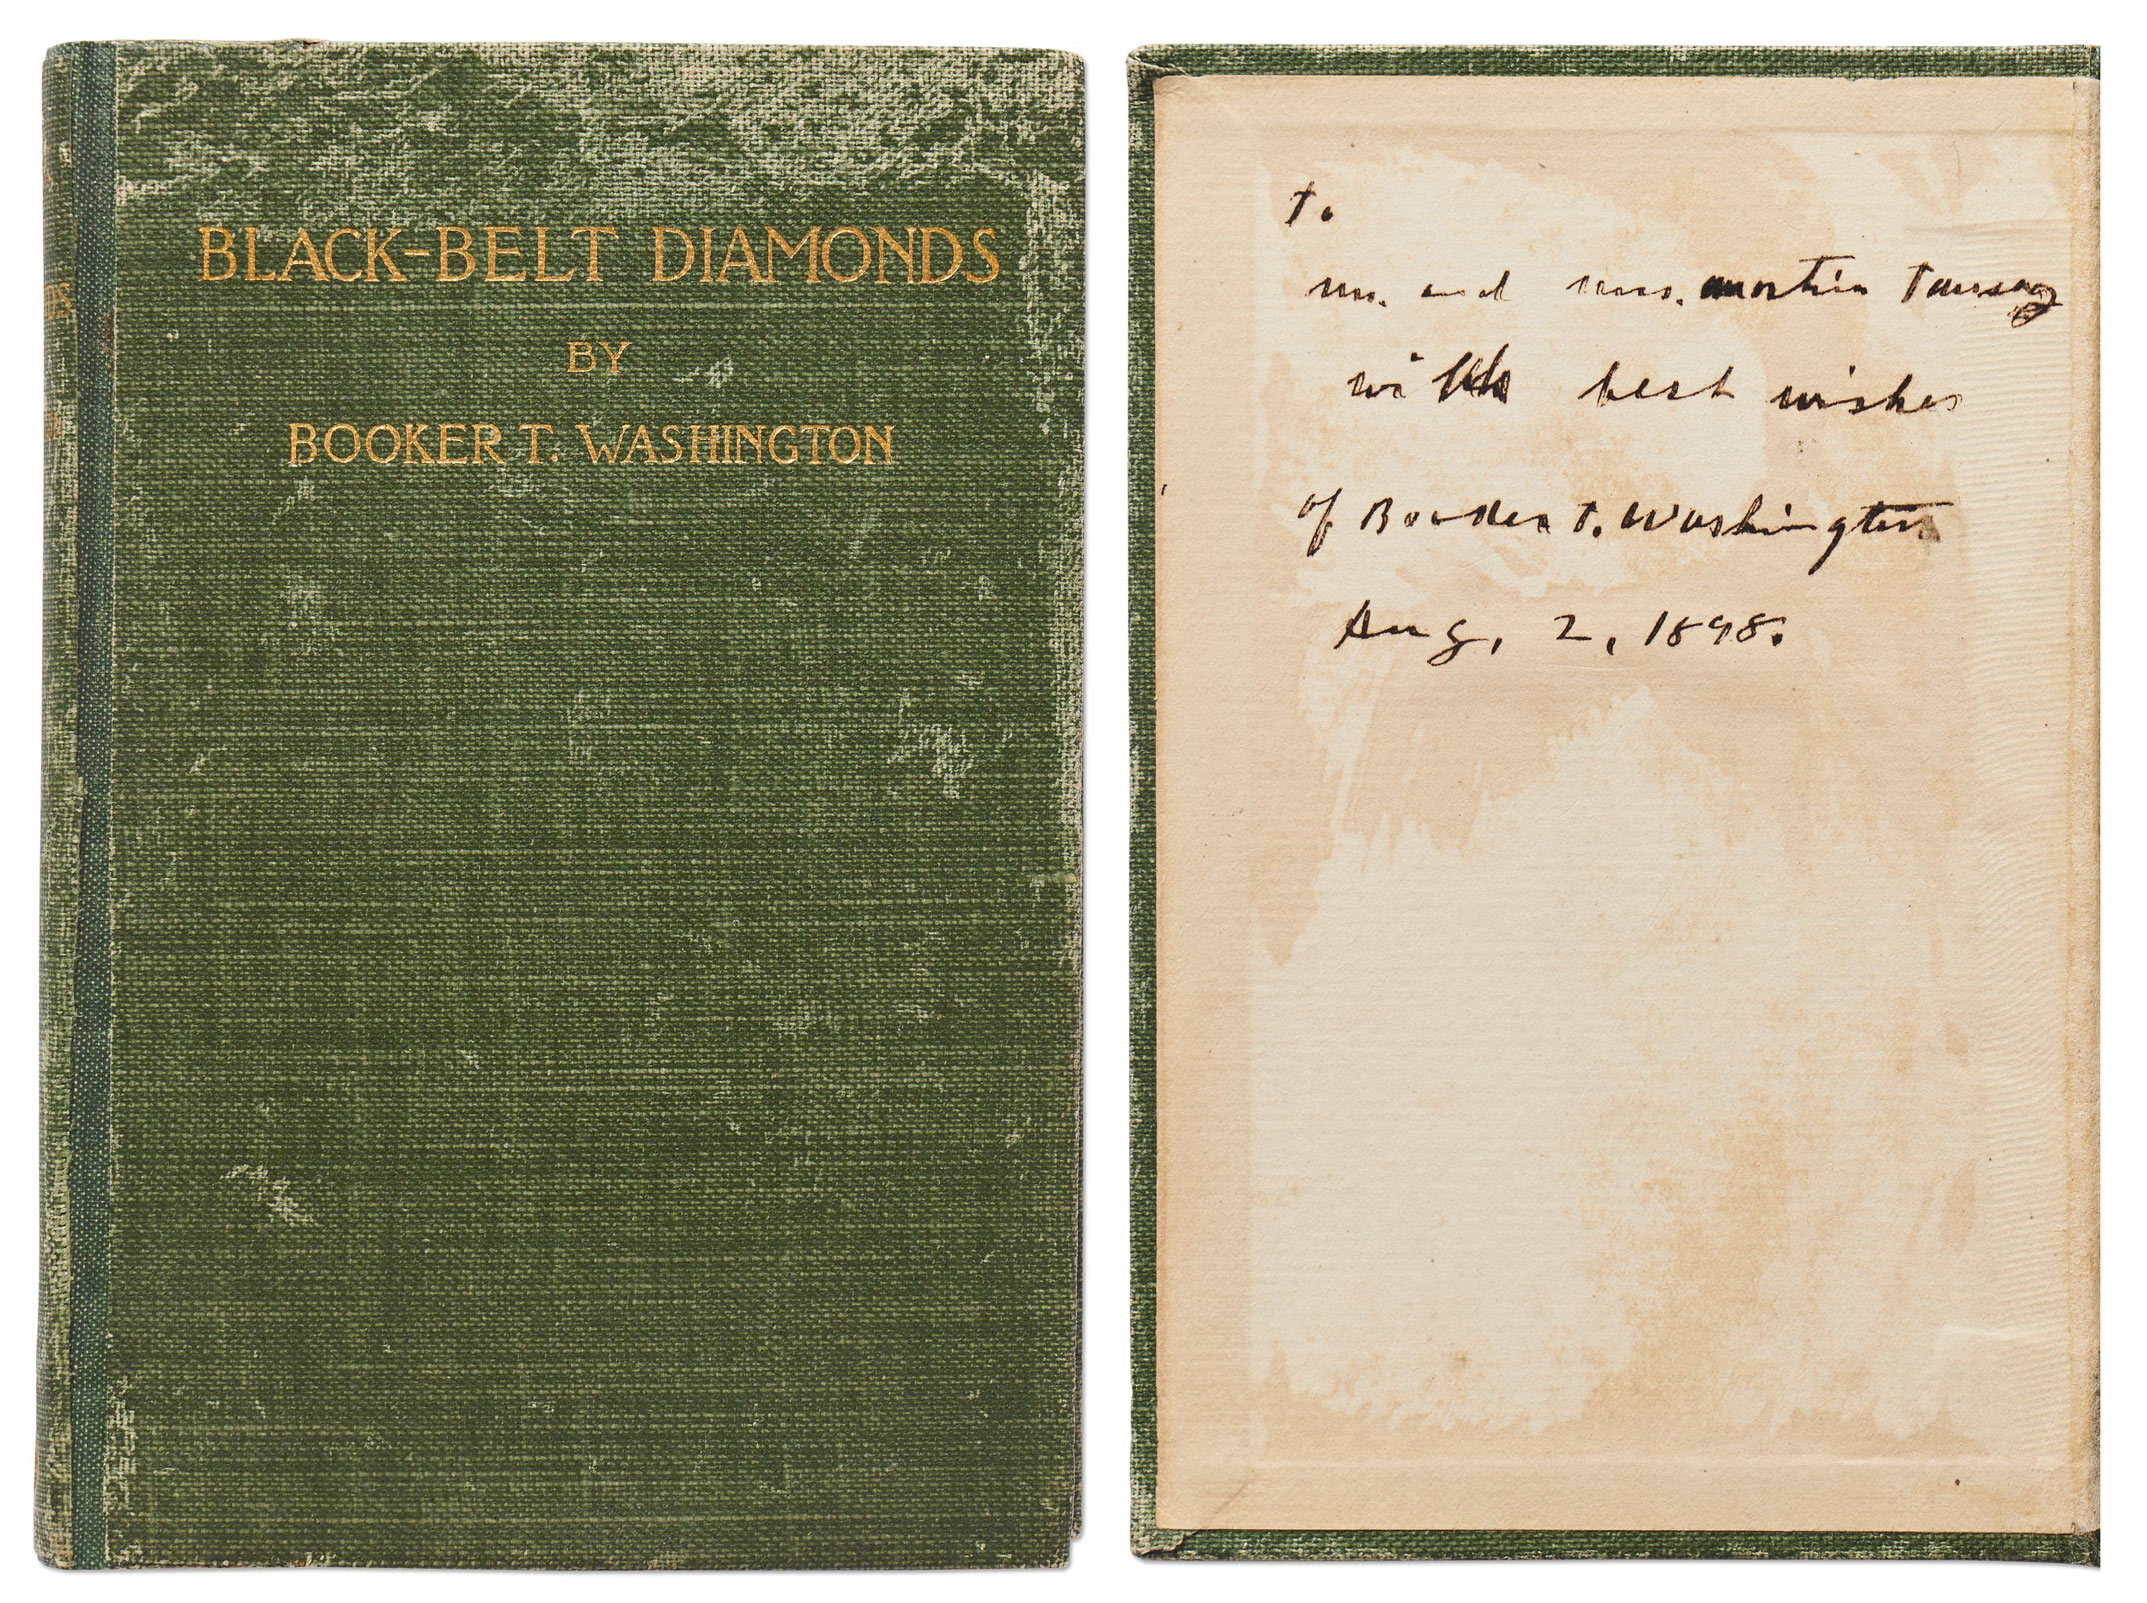 BLACK-BELT DIAMONDS
BY
BOOKER T. WASHINGTON
To
Mr. and Mrs.
with best wishes
of Booker T. Washington
Aug, 2, 1898.